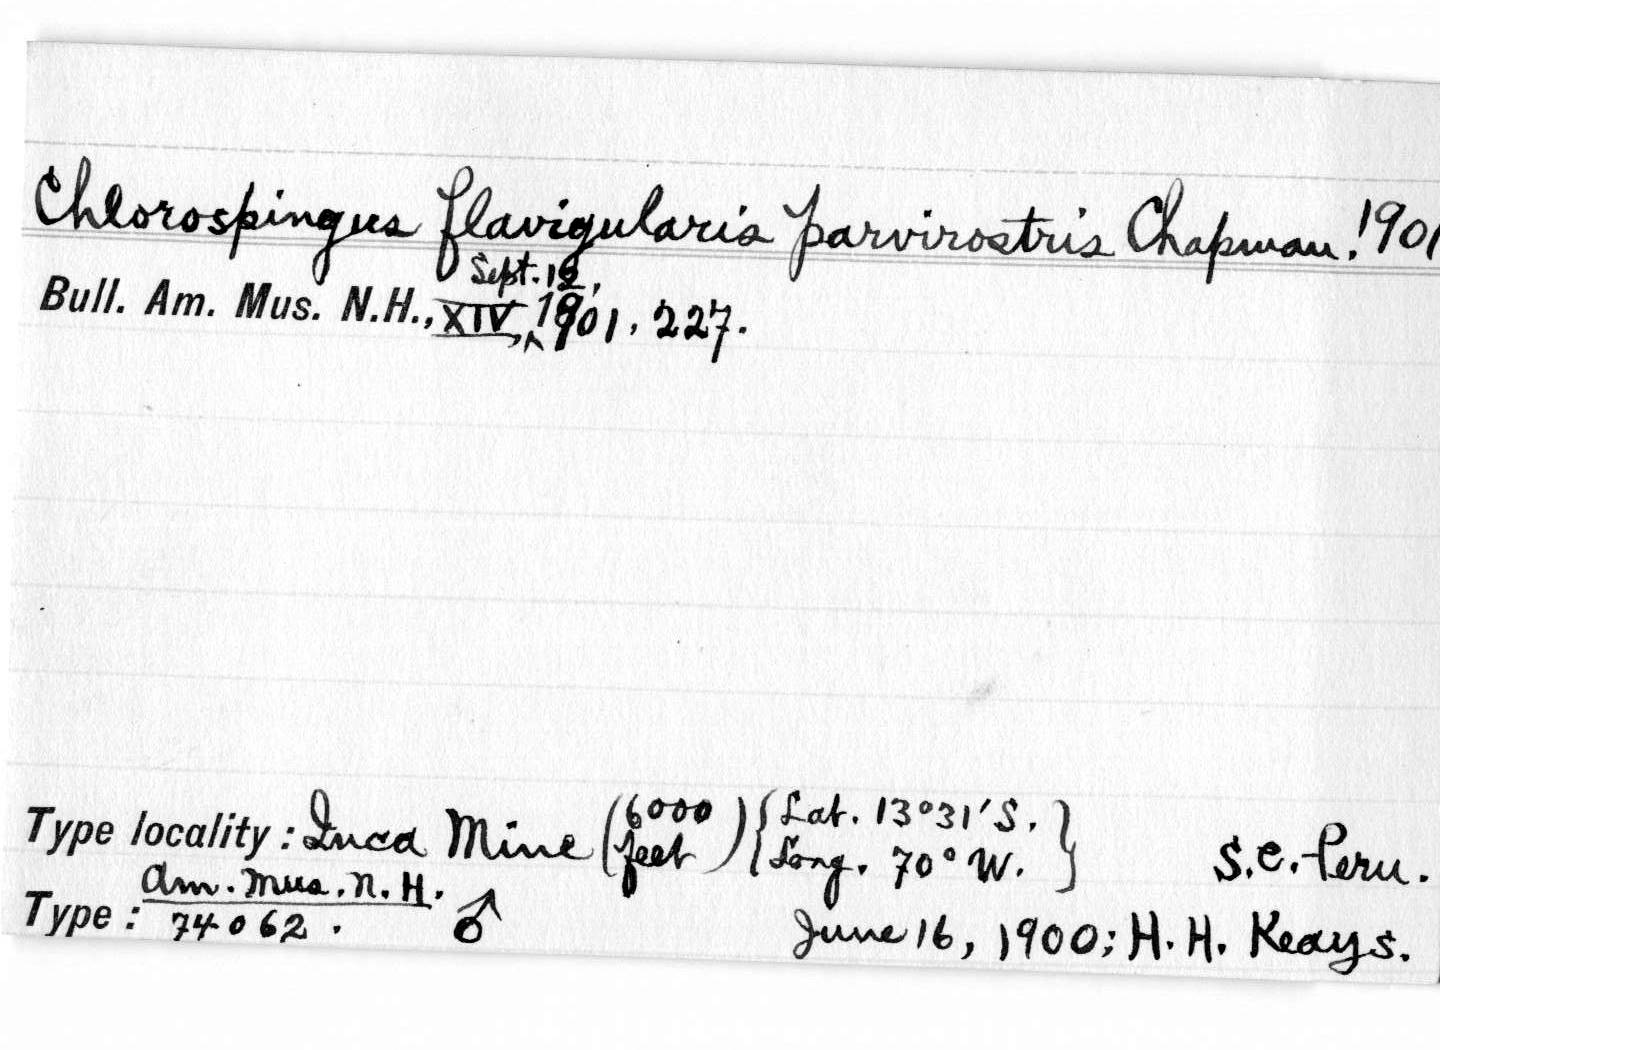 Chlorospingus flavigularis parvirostris Chapman. 1901
Sept. 12,
Bull. Am. Mus. N.H., XIV, ^ 1901, 227.
Type locality: Inca Mine (6000 feet) {Lat. 13°31'S. Long. 70° W.} S.E. Peru.
Type: Am. Mus. N. H. 74062. ♂ June 16, 1900; H. H. Keays.